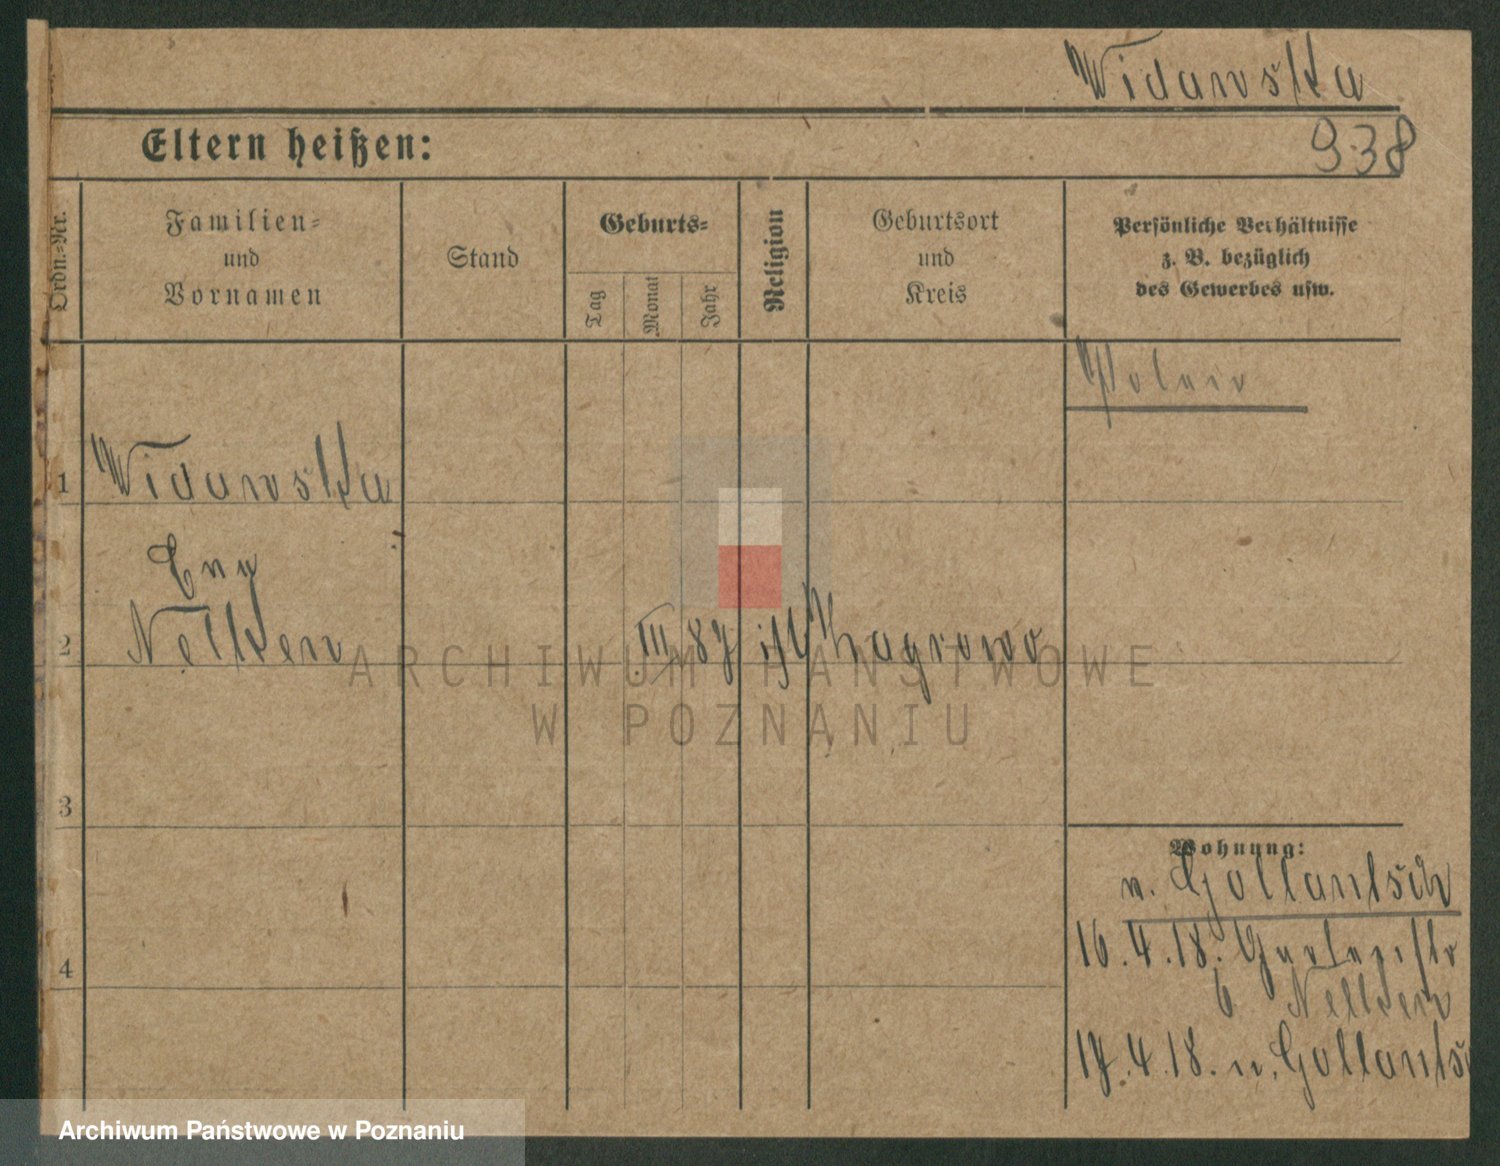 Widawska
938
Eltern heißen:
Ordn.-Nr.
Familien-
und
Vornamen
Stand
Geburts-
Tag
Monat
Jahr
Religion
Geburtsort
und
Kreis
Persönliche Verhältnisse
z. B. bezüglich
des Gewerbes usw.
Polnin
1 Widawska
2 Nelken III 87 isr
3
4
Wohnung:
n. Gollantsch
16.4.18. Gartenstr
6 Nelken
17.4.18. n. Gollants
ARCHIWUM PAŃSTWOWE
W POZNANIU
Archiwum Państwowe w Poznaniu